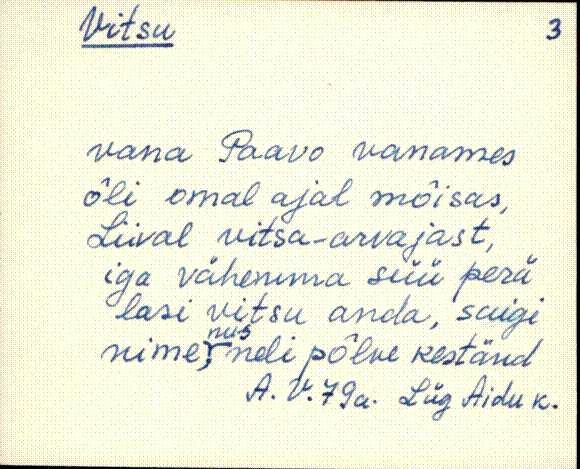 Vitsu 3
vana Paavo vanames
õli omal ajal mõisas,
Liival vitsa-arvajast,
iga vähemma süü perä
lasi vitsu anda, saigi
nime, nüs neli põlve keständ
A. V. 79a. Lüg Aidu k.